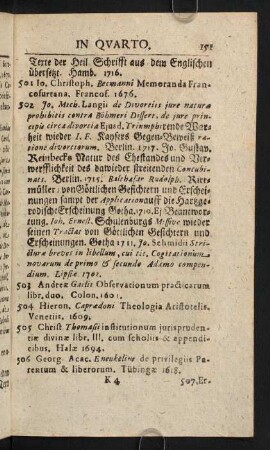 IN QVARTO. 151
Texte der Heil. Schrifft aus dem Englischen
übersetzt. Hamb. 1716.
501 Jo. Christoph. Becmanni Memoranda Fran-
cofurtana. Francof. 1676.
502 Jo. Mich. Langii de Divortiis jure naturæ
prohibitis contra Böhmeri Dissert. de jure prin-
cipis circa divortia Ejusd. Triumphirende War-
heit wieder J. F. Kaysers Gegen-Beweiß ra-
tione divortiorum. Berlin. 1717. Jo. Gustav.
Reinbecks Natur des Ehestandes und Ver-
werfflichkeit des dawider streitenden Concubi-
nats. Berlin. 1715. Balthasar Rudolph. Ritt-
müller von Göttlichen Gesichtern und Erschei-
nungen sampt der Application auff die Hartzge-
rodische Erscheinung Gotha. 1710. Ej Beantwor-
tung. Joh. Ernest. Schulenburgs Missive wieder
seinen Tractat von Göttlichen Gesichtern und
Erscheinungen. Gotha 1711, Jo. Schmidii Stri-
cturæ breves in libellum, cui tit. Cogitationum
novarum de primo & secundo Adamo compen-
dium. Lipsiæ 1702.
503 Andreæ Gailii Observationum practicarum
libr. duo. Colon. 1601.
504 Hieron. Capredoni Theologia Aristotelis.
Venetiis. 1609.
505 Christ Thomasii institutionum jurispruden-
tiæ divinæ libr. III. cum scholiis & appendi-
cibus. Halæ 1694.
506 Georg. Acac. Enenkelins de privilegiis Pa-
rentum & liberorum. Tübingæ 1618.
K 4 507, Er-